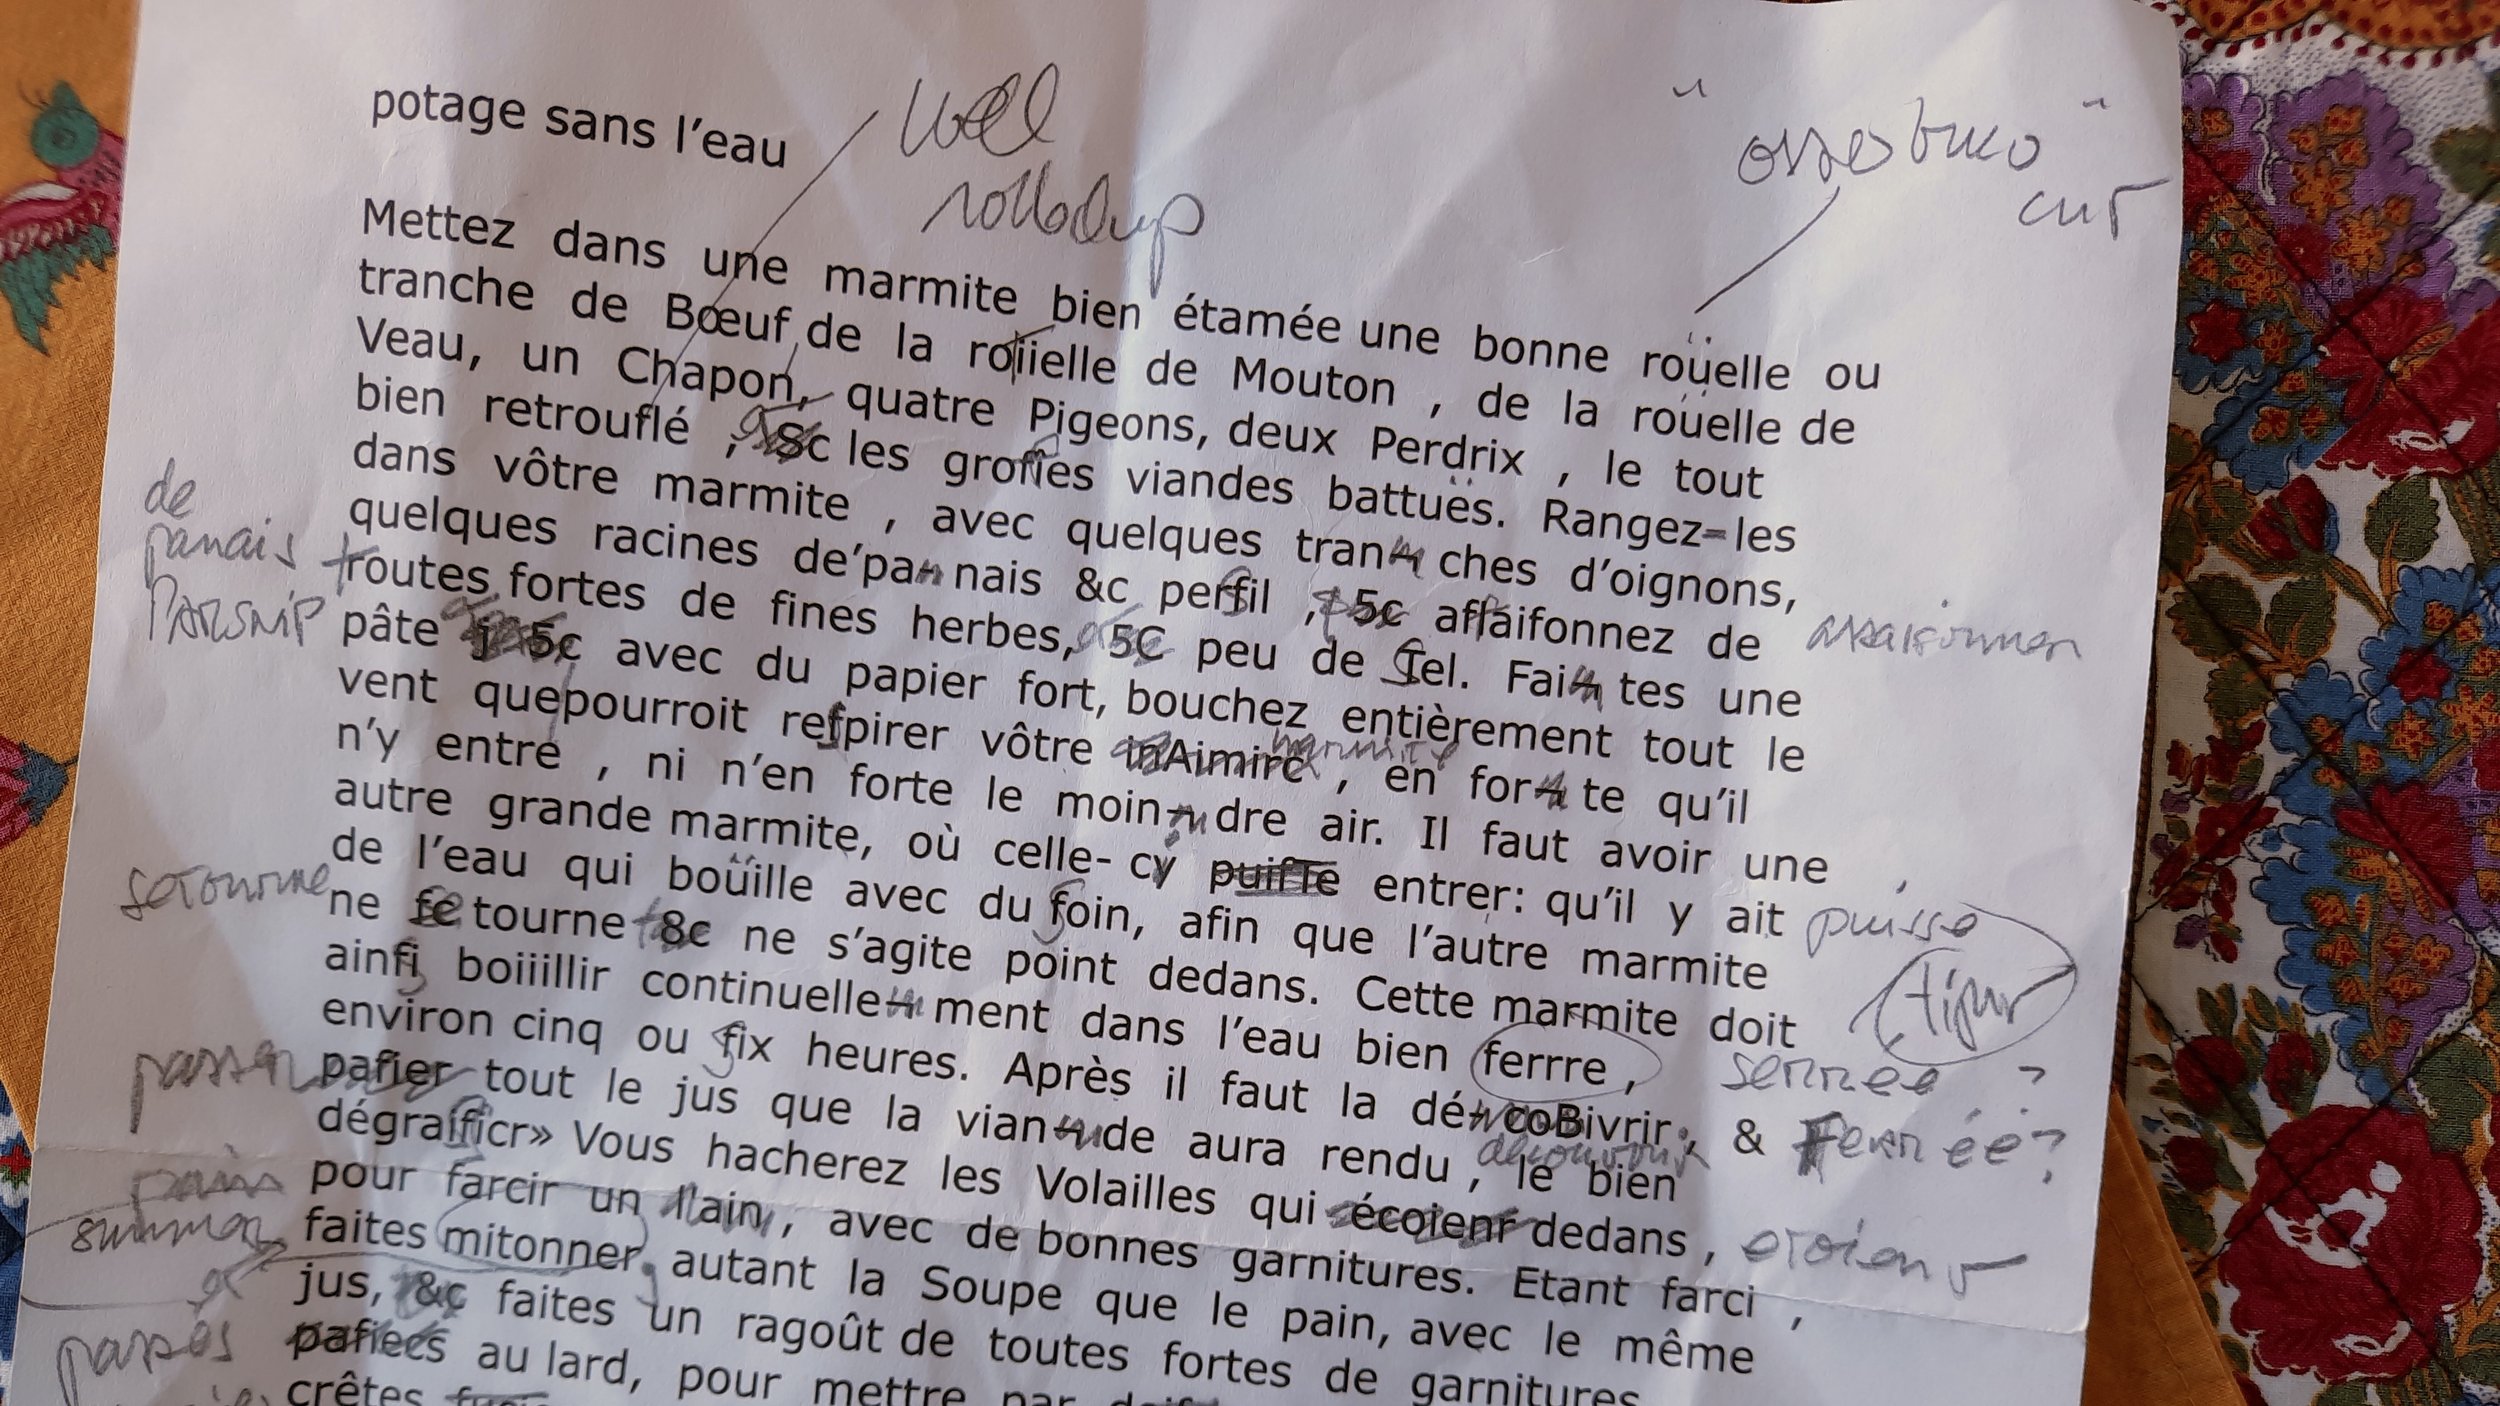 potage sans l'eau
well
rolled up
"osso buco"
cut
Mettez dans une marmite bien étamée une bonne roüelle ou
tranche de Bœuf, de la roiielle de Mouton , de la roüelle de
Veau, un Chapon, quatre Pigeons, deux Perdrix , le tout
bien retrouflé , &c les groffes viandes battuës. Rangez-les
dans vôtre marmite , avec quelques tran- ches d'oignons,
quelques racines de'pa- nais &c perfil , 5c affaifonnez de
troutes fortes de fines herbes, 5C peu de fel. Fai- tes une
pâte j 5c avec du papier fort, bouchez entièrement tout le
vent quepourroit refpirer vôtre inAimirc , en for- te qu'il
n'y entre , ni n'en forte le moin- dre air. Il faut avoir une
autre grande marmite, où celle- cy puifTe entrer: qu'il y ait
de l'eau qui boüille avec du foin, afin que l'autre marmite
ne fe tourne 8c ne s'agite point dedans. Cette marmite doit
ainfi boiiillir continuelle- ment dans l'eau bien ferrre ,
environ cinq ou fix heures. Après il faut la dé- coBivrir , &
pafier tout le jus que la vian- de aura rendu , le bien
dégraificr» Vous hacherez les Volailles qui écoienr dedans ,
pour farcir un l'ain , avec de bonnes garnitures. Etant farci ,
faites mitonner autant la Soupe que le pain, avec le même
jus, &c faites un ragoût de toutes fortes de garnitures
pafiecs au lard, pour mettre par
crêtes
de
panais
PARSNIP
assaisonner
marmite
puisse
se tourne
serree ?
Ferrée?
passer
découvrir
pain
simmer
étoient
passés